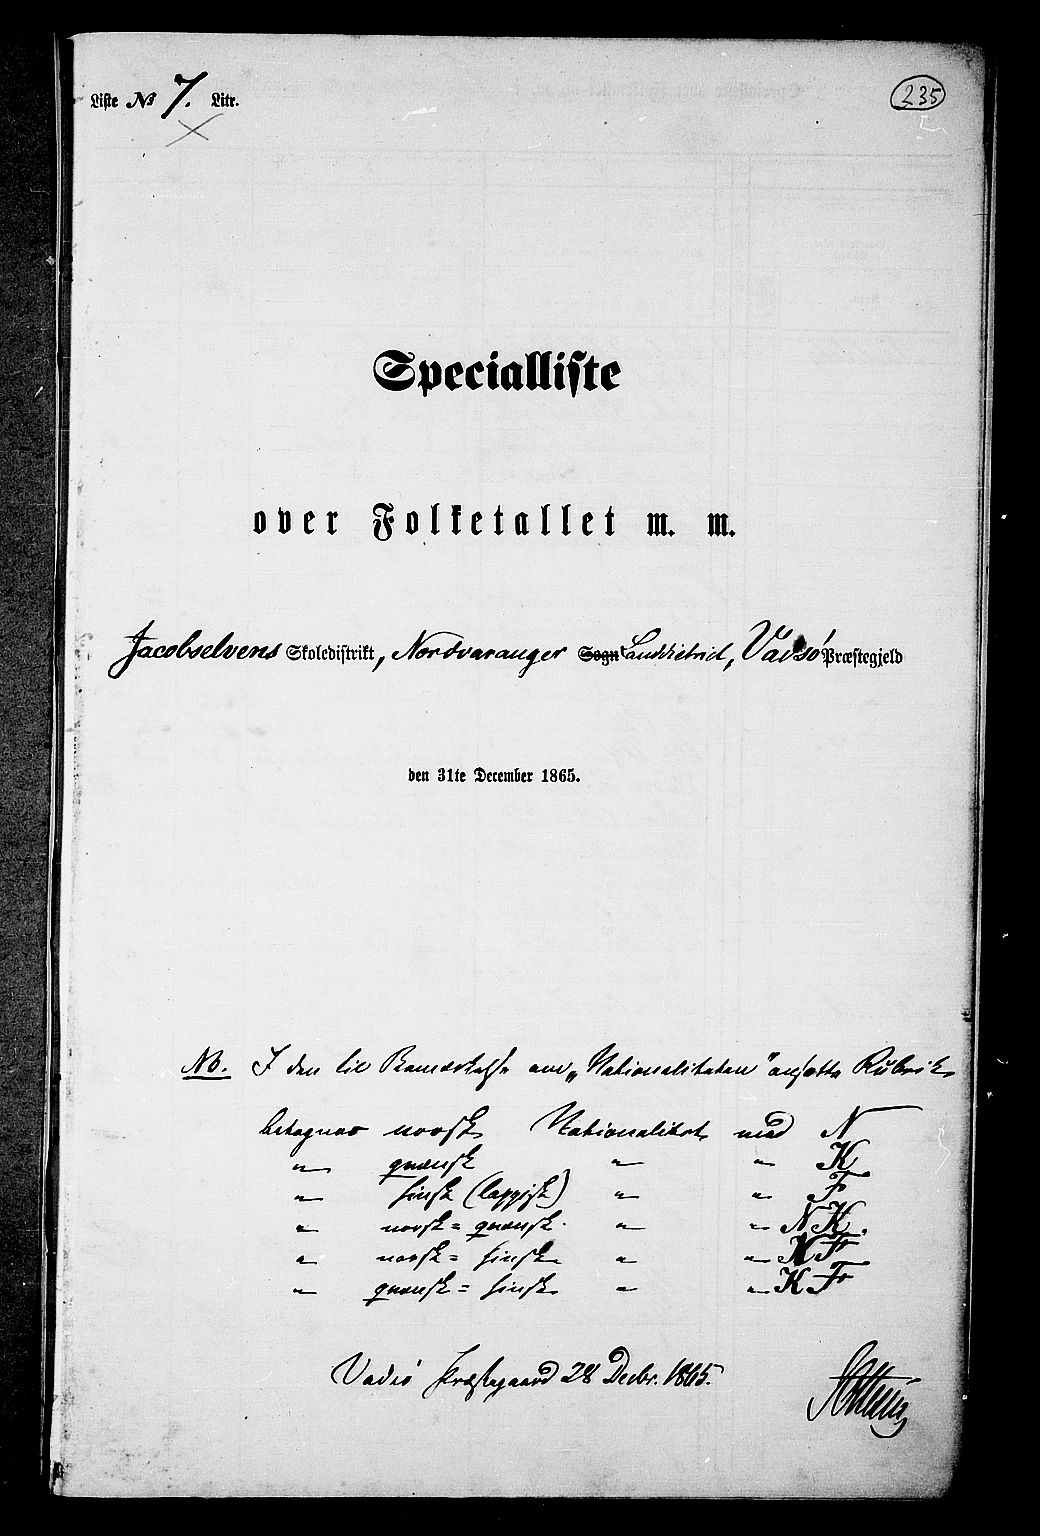 Liste No 7. Litr.
235
Specialliste
over Folketallet m. m.
Jacobselvens Skoledistrikt, Nordvaranger Sogn Landdistrict, Vadsö Præstegjeld
den 31te December 1865.
NB. I den til Bemærkelse om „Nationaliteten" ansatte Rubrik
betegnes norsk Nationalitet med N
" qvænsk " " K
" finsk (lappisk) " " F
" norsk=qvænsk. " " NK.
" norsk=finsk " " NF
" qvænsk=finsk " " KF
Vadsö Præstegaard 28 Decbr. 1865.